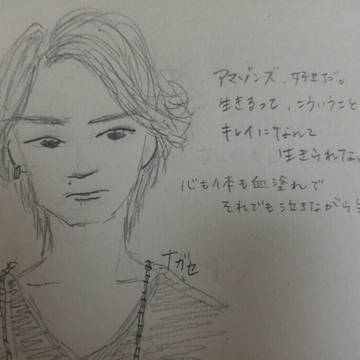 アマゾンズ、好きだ。
生きるって、こういうこと
キレイになんて
生きられない
心も体も血塗れで
それでも泣きながら
ナガセ